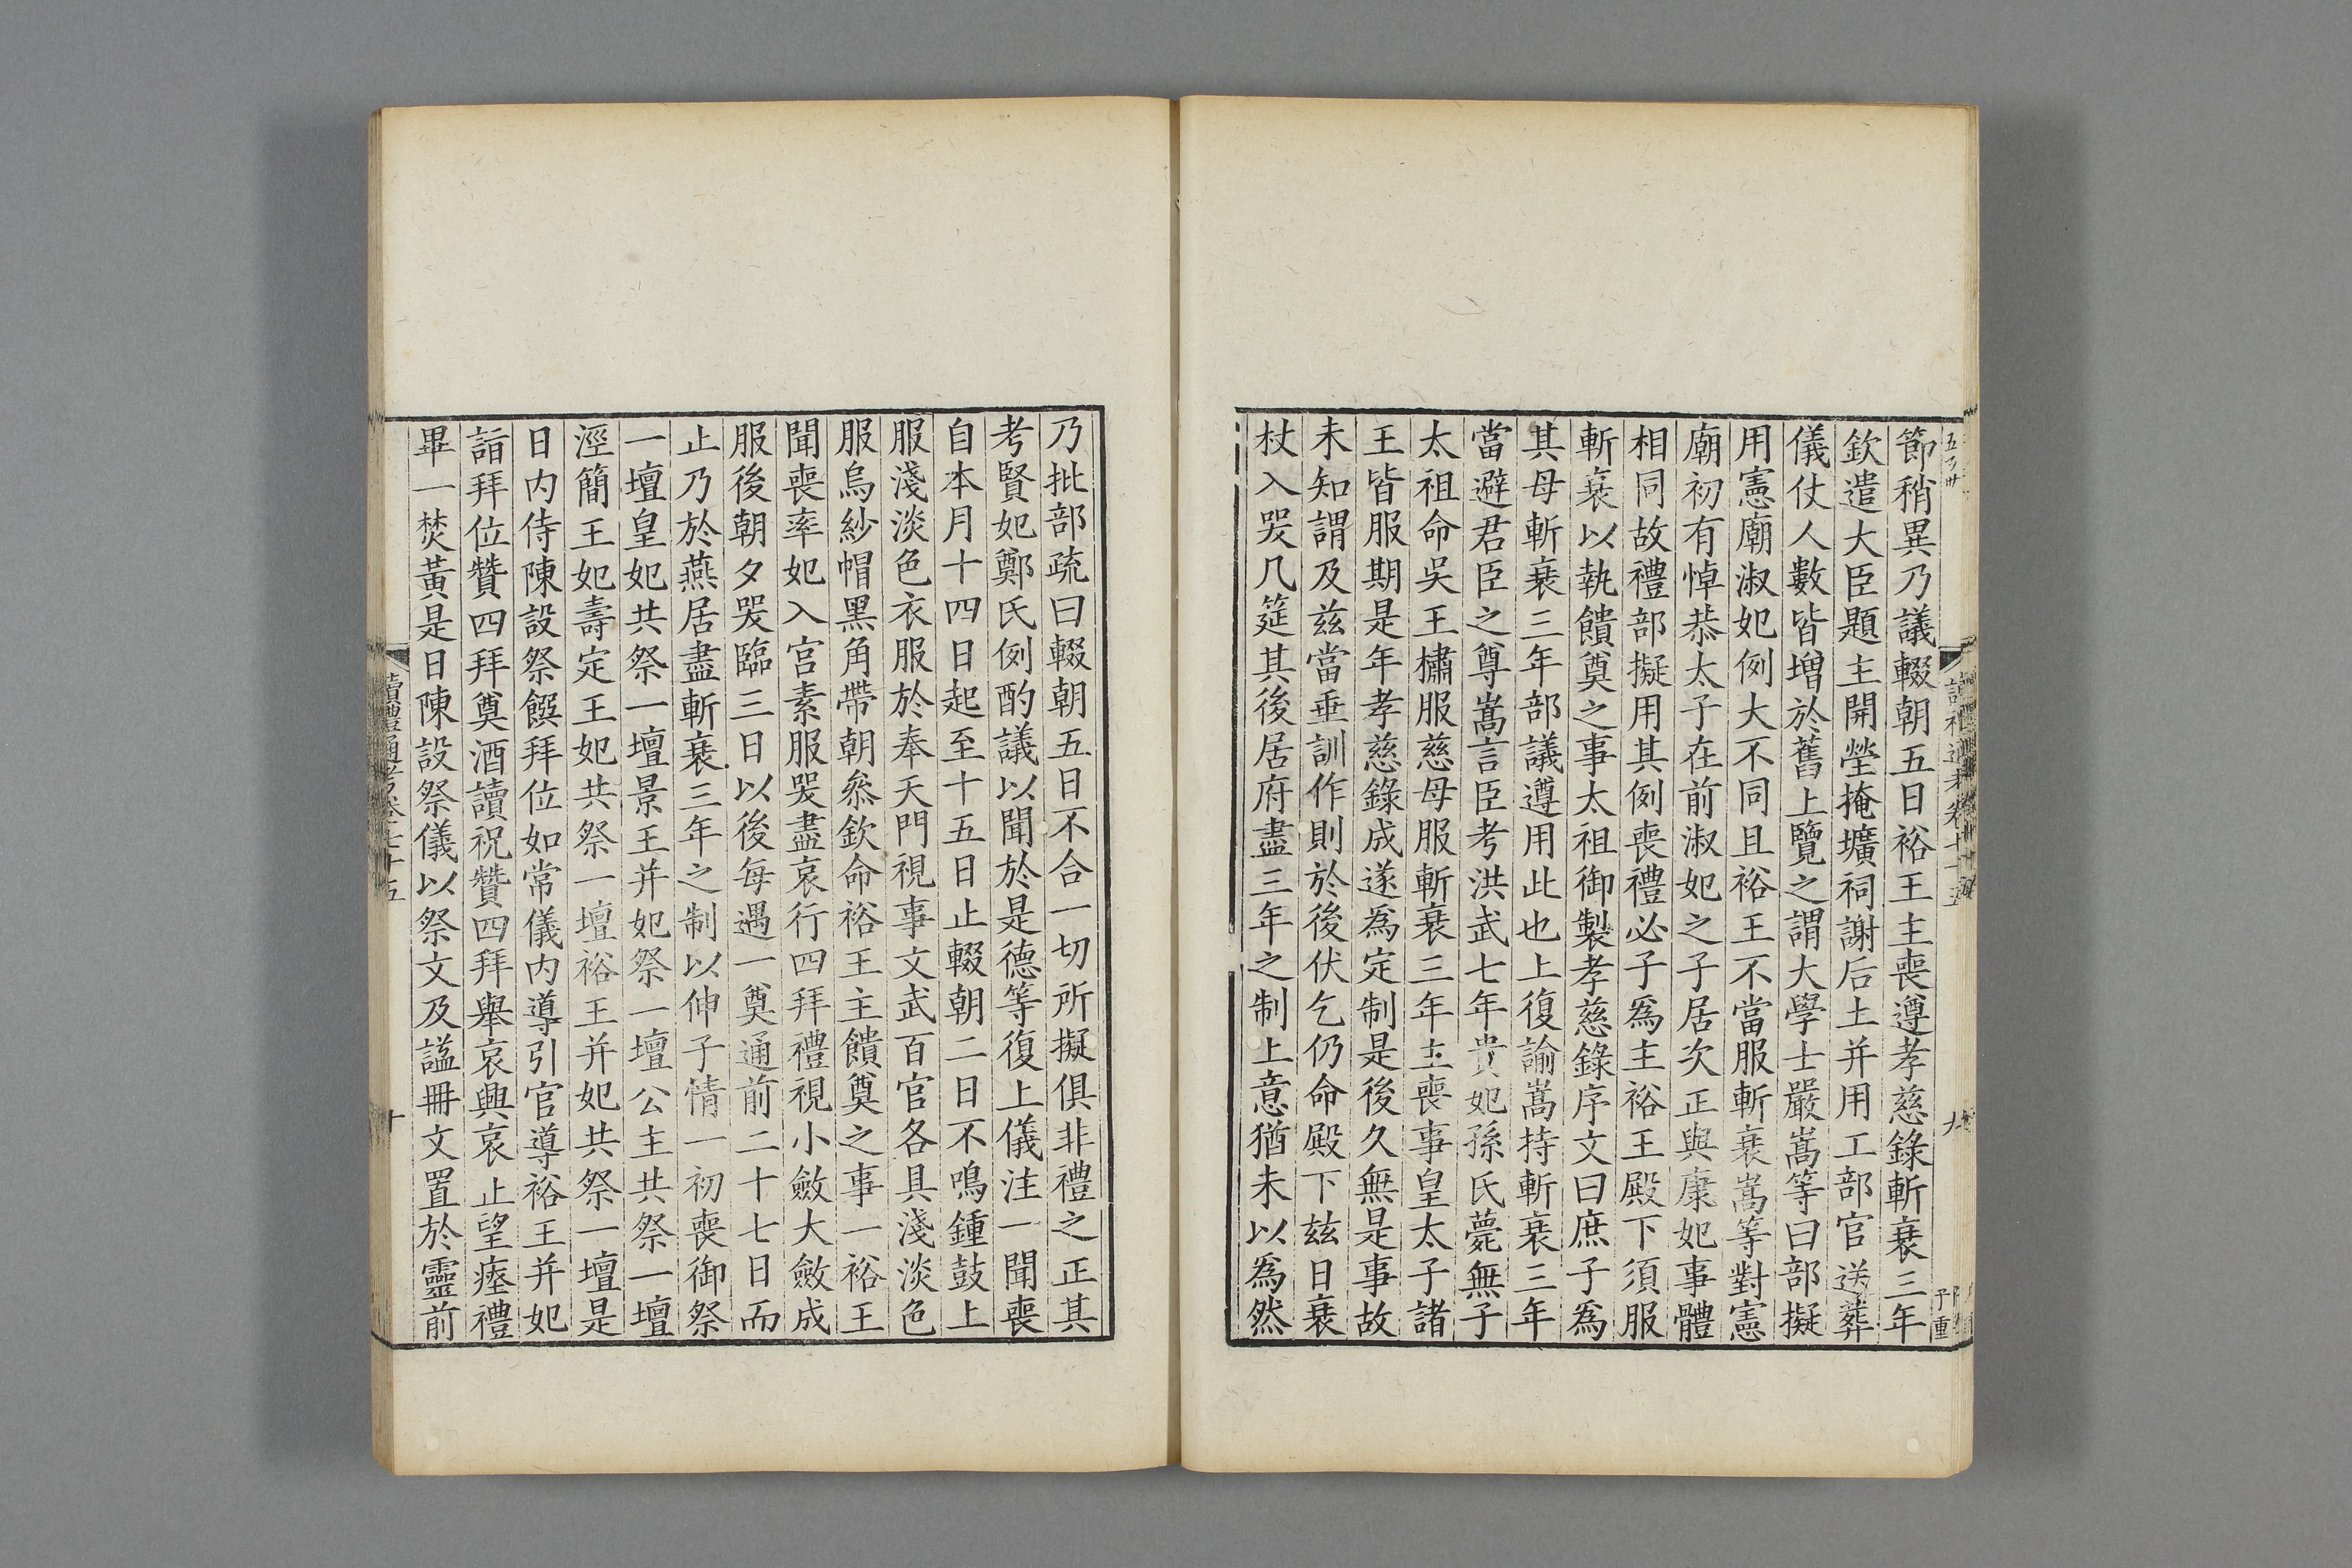 節稍異乃議輟朝五日裕王主喪遵孝慈錄斬衰三年
欽遣大臣題主開塋掩壙祠謝后土并用工部官送葬
儀仗人數皆增於舊上覽之謂大學士嚴嵩等曰部擬
用憲廟淑妃例大不同且裕王不當服斬衰嵩等對憲
廟初有悼恭太子在前淑妃之子居次正與康妃事體
相同故禮部擬用其例喪禮必子爲主裕王殿下須服
斬衰以執饋奠之事太祖御製孝慈錄序文曰庶子爲
其母斬衰三年部議遵用此也上復諭嵩持斬衰三年
當避君臣之尊嵩言臣考洪武七年貴妃孫氏薨無子
太祖命吳王橚服慈母服斬衰三年主喪事皇太子諸
王皆服期是年孝慈錄成遂爲定制是後久無是事故
未知謂及茲當垂訓作則於後伏乞仍命殿下茲日衰
杖入哭几筵其後居府盡三年之制上意猶未以爲然
乃批部疏曰輟朝五日不合一切所擬俱非禮之正其
考賢妃鄭氏例酌議以聞於是德等復上儀注一聞喪
自本月十四日起至十五日止輟朝二日不鳴鍾鼓上
服淺淡色衣服於奉天門視事文武百官各具淺淡色
服烏紗帽黑角帶朝叅欽命裕王主饋奠之事一裕王
聞喪率妃入宮素服哭盡哀行四拜禮視小斂大斂成
服後朝夕哭臨三日以後每遇一奠通前二十七日而
止乃於燕居盡斬衰三年之制以伸子情一初喪御祭
一壇皇妃共祭一壇景王并妃祭一壇公主共祭一壇
涇簡王妃壽定王妃共祭一壇裕王并妃共祭一壇是
日內侍陳設祭饌拜位如常儀內導引官導裕王并妃
詣拜位贊四拜奠酒讀祝贊四拜舉哀興哀止望瘞禮
畢一焚黃是日陳設祭儀以祭文及謚冊文置於靈前
讀禮通考卷七十五
十